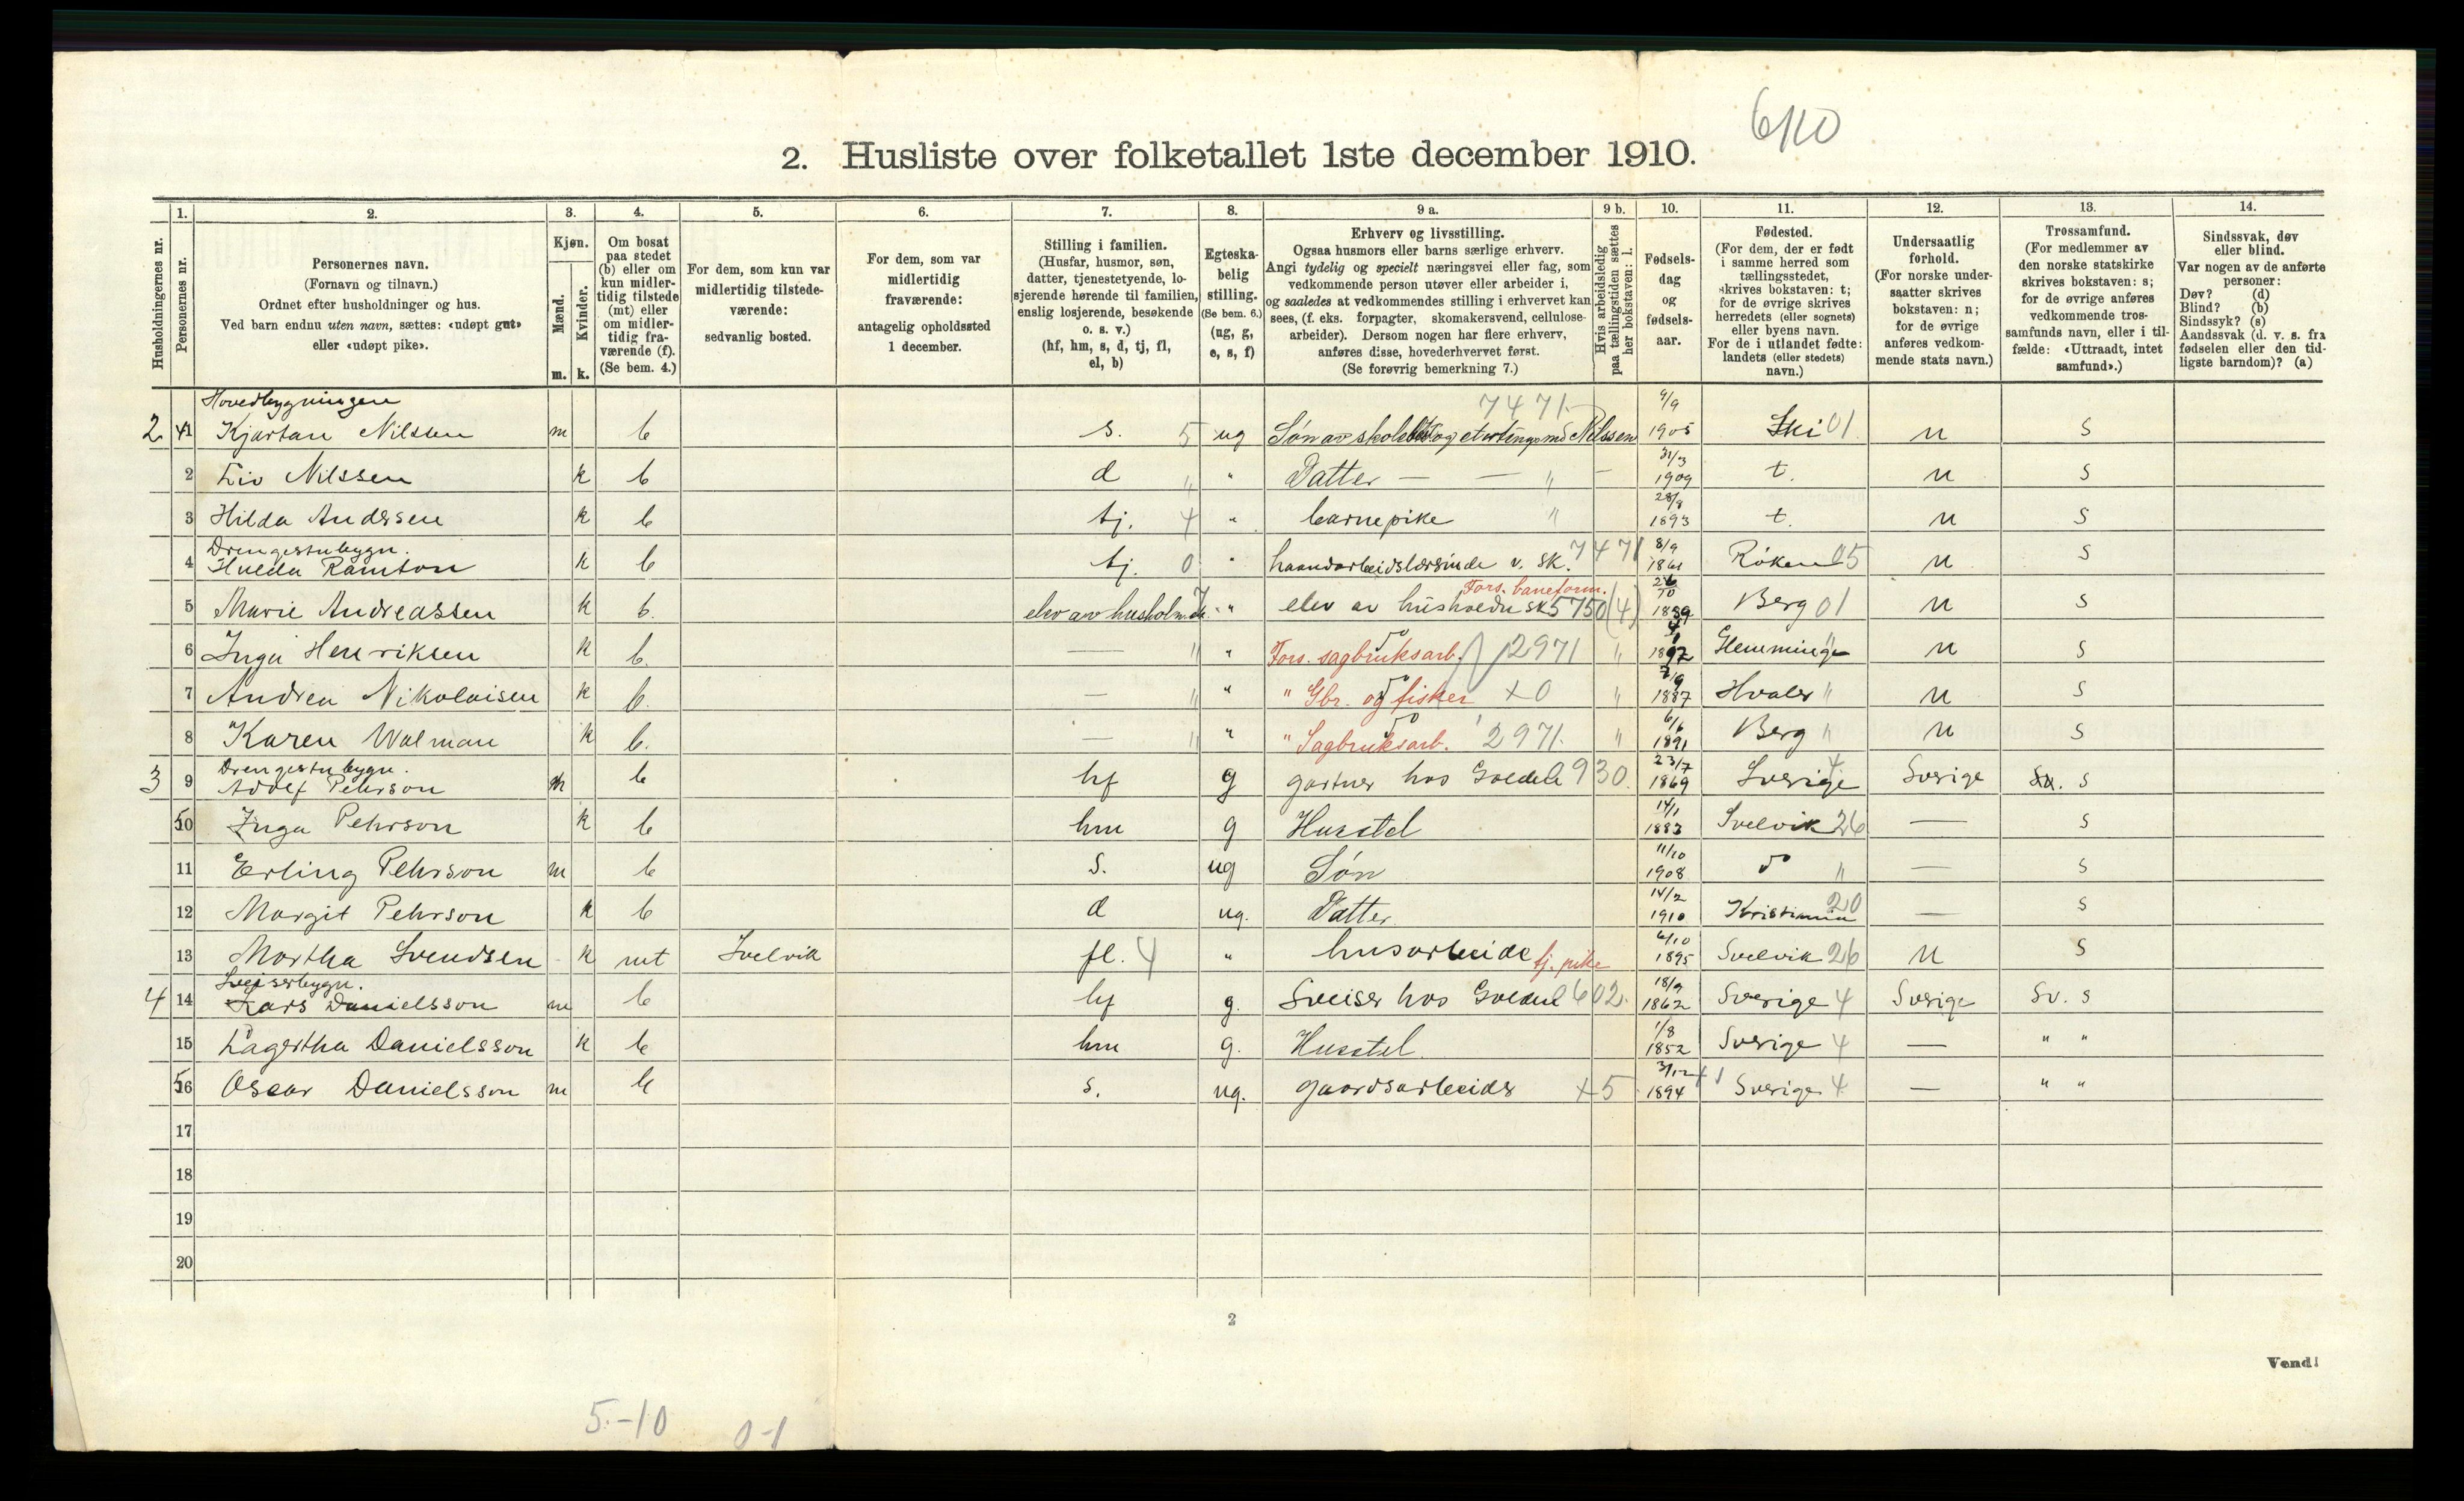 6/10
2. Husliste over folketallet 1ste december 1910.
Husholdningernes nr.
1. Personernes nr.
2. Personernes navn.
(Fornavn og tilnavn.)
Ordnet efter husholdninger og hus.
Ved barn endnu uten navn, sættes: «udøpt gut»
eller «udøpt pike».
3. Kjøn.
Mænd. m.
Kvinder. k.
4. Om bosat
paa stedet
(b) eller om
kun midler-
tidig tilstede
(mt) eller
om midler-
tidig fra-
værende (f).
(Se bem. 4.)
5. For dem, som kun var
midlertidig tilstede-
værende:
sedvanlig bosted.
6. For dem, som var
midlertidig
fraværende:
antagelig opholdssted
1 december.
7. Stilling i familien.
(Husfar, husmor, søn,
datter, tjenestetyende, lo-
sjerende hørende til familien,
enslig losjerende, besøkende
o. s. v.)
(hf, hm, s, d, tj, fl,
el, b)
8. Egteska-
belig
stilling.
(Se bem. 6.)
(ug, g,
e, s, f)
9 a. Erhverv og livsstilling.
Ogsaa husmors eller barns særlige erhverv.
Angi tydelig og specielt næringsvei eller fag, som
vedkommende person utøver eller arbeider i,
og saaledes at vedkommendes stilling i erhvervet kan
sees, (f. eks. forpagter, skomakersvend, cellulose-
arbeider). Dersom nogen har flere erhverv,
anføres disse, hovederhvervet først.
(Se forøvrig bemerkning 7.)
9 b. Hvis arbeidsledig
paa tællingstiden sættes
her bokstaven: l.
10. Fødsels-
dag
og
fødsels-
aar.
11. Fødested.
(For dem, der er født
i samme herred som
tællingsstedet,
skrives bokstaven: t;
for de øvrige skrives
herredets (eller sognets)
eller byens navn.
For de i utlandet fødte:
landets (eller stedets)
navn.)
12. Undersaatlig
forhold.
(For norske under-
saatter skrives
bokstaven: n;
for de øvrige
anføres vedkom-
mende stats navn.)
13. Trossamfund.
(For medlemmer av
den norske statskirke
skrives bokstaven: s;
for de øvrige anføres
vedkommende tros-
samfunds navn, eller i til-
fælde: «Uttraadt, intet
samfund».)
14. Sindssvak, døv
eller blind.
Var nogen av de anførte
personer:
Døv? (d)
Blind? (b)
Sindssyk? (s)
Aandssvak (d. v. s. fra
fødselen eller den tid-
ligste barndom)? (a)
Hovedbygningen 7471
2 1 Kjartan Nilssen m b s. 5 ug Søn av og Nilssen 9/9 1905 Ski 01 n s
2 Liv Nilssen k b d " " Datter — — " — 31/3 1909 t. n s
3 Hilda Andersen k b tj. 4 " barnepike " 28/8 1893 t. n s
Drengestubygn.
4 Hulda Ramton k b tj. 0 " haandarbeidslærinde v. sk. 7471 8/9 1861 Røken 05 n s
Fors. baneform.
5 Marie Andreassen k b. elev av husholn.sk. 7 " elev av husholdn sk 5750 (4) 26/10 1889 Berg 01 n s
6 Inga Henriksen k b. — " " do Fors. sagbruksarb. 2971 " 4/1 1892 Glemminge " n s
7 Andrea Nikolaisen k b. — " " do " Gbr. og fisker x0 " 7/9 1887 Hvaler " n s
8 Karen Walman k b. — " " do " Sagbruksarb. 2971 " 6/6 1891 Berg " n s
Drengestubygn.
3 9 Adolf Pehrson m b hf g gartner hos 930 23/7 1869 Sverige 4 Sverige s
10 Inga Pehrson k b hm g Husstel 14/1 1883 Svelvik 26 — s
11 Erling Pehrson m b s. ug Søn 11/10 1908 do " — s
12 Margit Pehrson k b d ug. Datter 14/2 1910 Kristiania 20 — s
13 Martha Svendsen k mt Svelvik fl. 4 " husarbeide tj. pike 6/10 1895 Svelvik 26 n s
Sveiserbygn.
4 14 Lars Danielsson m b hf g. Sveiser hos 602 18/9 1862 Sverige 4 Sverige Sv. s
15 Lagertha Danielsson k b hm g. Husstel 1/8 1852 Sverige 4 — " "
16 Oscar Danielsson m b s. ug. gaardsarbeider x5 3/12 1894 Sverige 4 — " "
17
18
19
20
2
Vend!
5-10 0-1